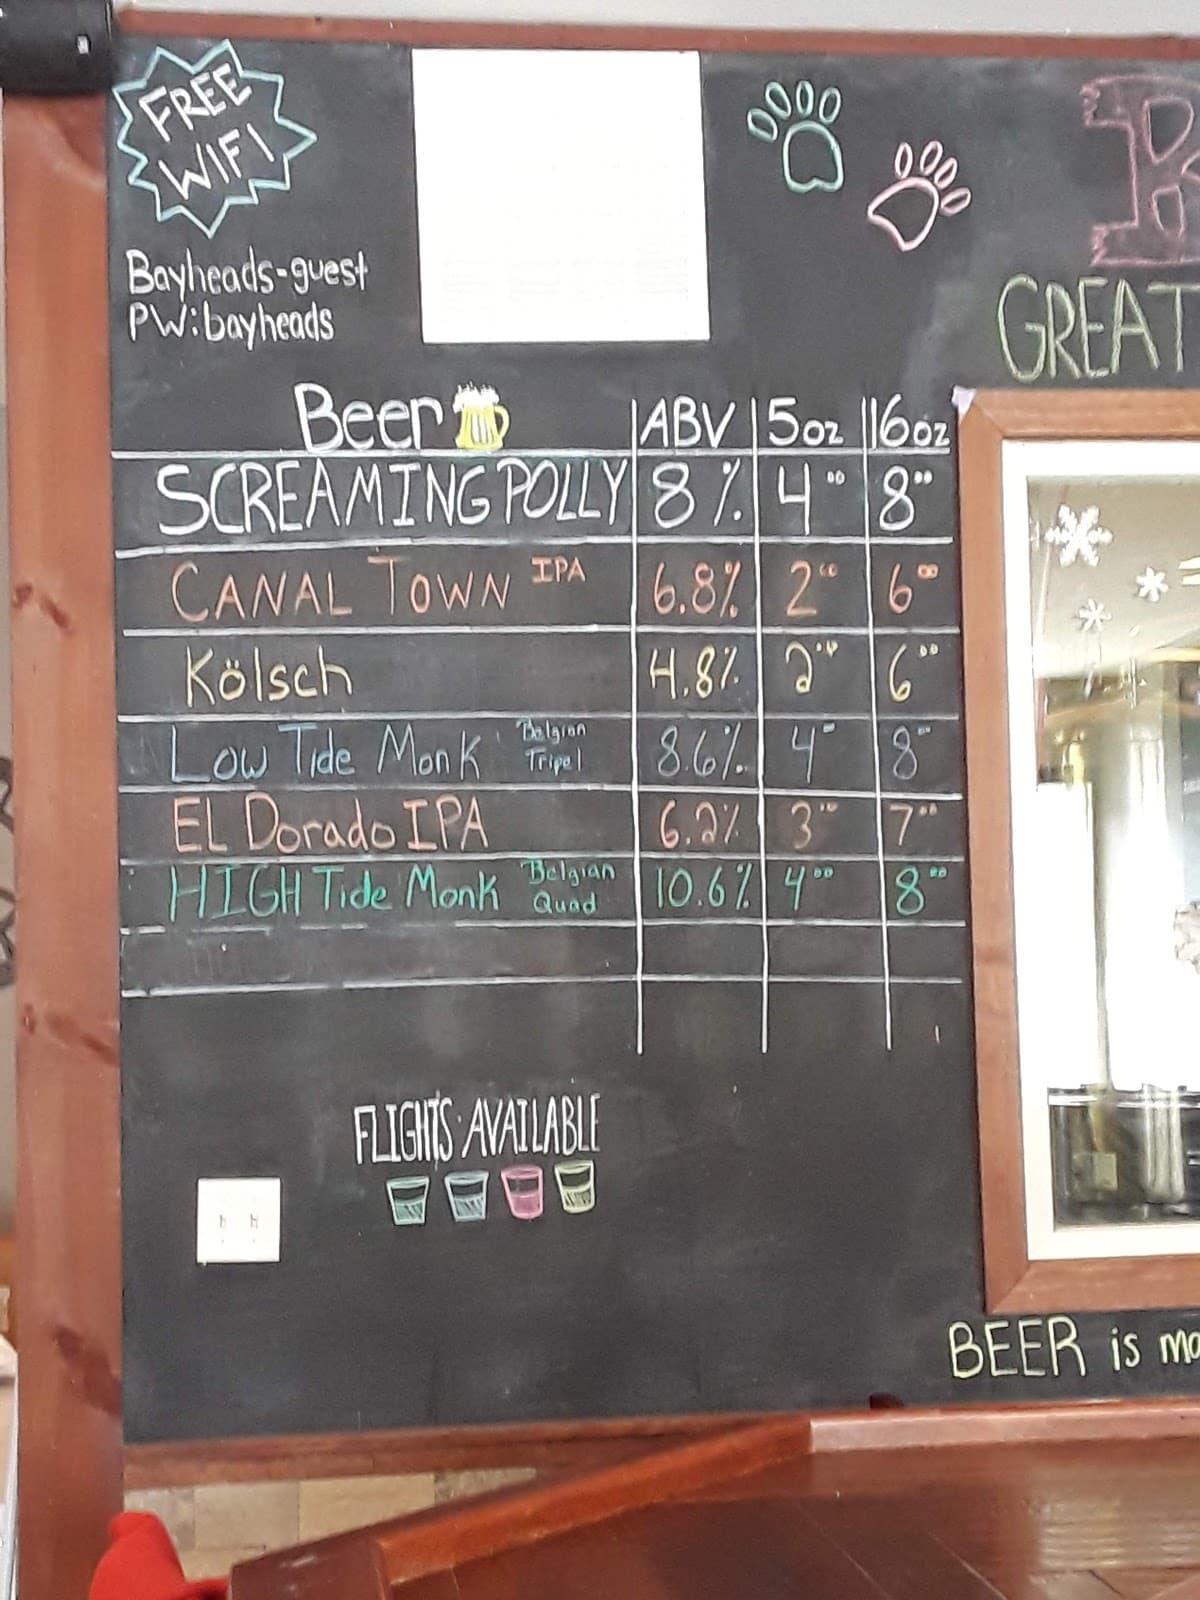 FREE
WIFI
Bayheads-guest
PW: bayheads
GREAT
Beer ABV 5oz 16oz
SCREAMING POLLY 8% 4.00 8.00
CANAL TOWN IPA 6.8% 2.00 6.00
Kölsch 4.8% 2.00 6.00
Low Tide Monk Belgian Tripel 8.6% 4 8
EL Dorado IPA 6.2% 3.00 7.00
HIGH Tide Monk Belgian Quad 10.6% 4.00 8.00
FLIGHTS AVAILABLE
BEER is